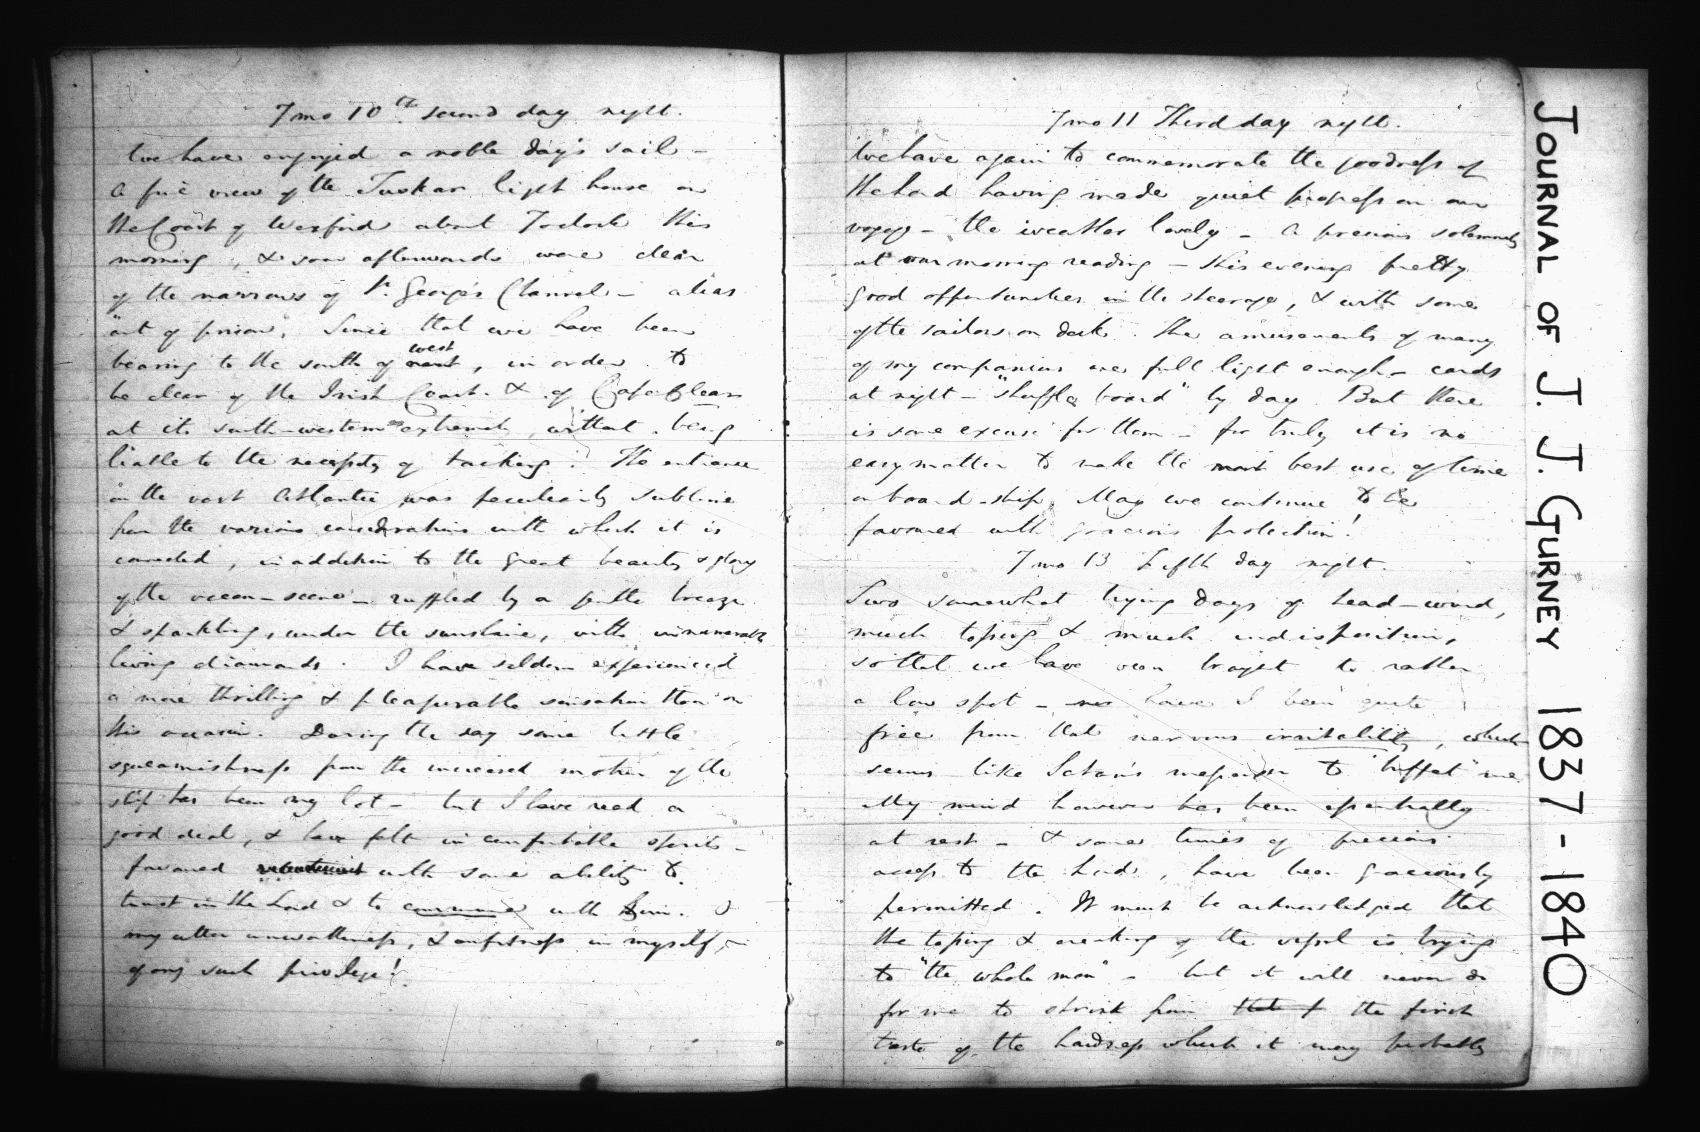 7 mo 10th second day night.
We have enjoyed a noble day's sail -
a fine view of the Tuskar light house on
the Coast of Wexford about 7 oclock this
morning, & soon afterwards were clear
of the narrows of St. George's Channel - alias
"out of prison". Since that we have been
bearing to the south of west, in order to
be clear of the Irish Coast & of Cape Clear
at its south-western extremity, without being
liable to the necessity of tacking. The entrance
on the vast Atlantic was peculiarly sublime
from the various considerations with which it is
connected, in addition to the great beauty & glory
of the ocean-scene - ruffled by a gentle breeze
& sparkling, under the sunshine, with innumerable
living diamonds. I have seldom experienced
a more thrilling & pleasurable sensation than on
this occasion. During the day some little
squeamishness from the increased motion of the
ship has been my lot - but I have read a
good deal, & have felt in comfortable spirits -
favoured with some ability to
trust in the Lord & to commune with Him. O
my utter unworthiness, & unfitness in myself,
of any such privilege!
7 mo 11 Third day night.
We have again to commemorate the goodness of
the Lord having made quiet progress on our
voyage - the weather lovely - a precious solemnity
at our morning reading - this evening pretty
good opportunities in the steerage, & with some
of the sailors on deck. The amusements of many
of my companions are full light enough - cards
at night - "shuffle board" by day. But there
is some excuse for them - for truly it is no
easy matter to make the best use of time
on board-ship. May we continue to be
favoured with gracious protection!
7 mo 13 Fifth day night.
Two somewhat trying days of head-wind,
much tossing & much indisposition,
so that we have been brought to rather
a low spot - nor have I been quite
free from that nervous irritability, which
seems like Satan's messenger to "buffet" me
My mind however has been essentially
at rest - & some times of precious
access to the Lord, have been graciously
permitted. It must be acknowledged that
the tossing & creaking of the vessel is trying
to "the whole man" - but it will never do
for me to shrink from the first
taste of the hardness which it may probably
JOURNAL OF J. J. GURNEY 1837-1840